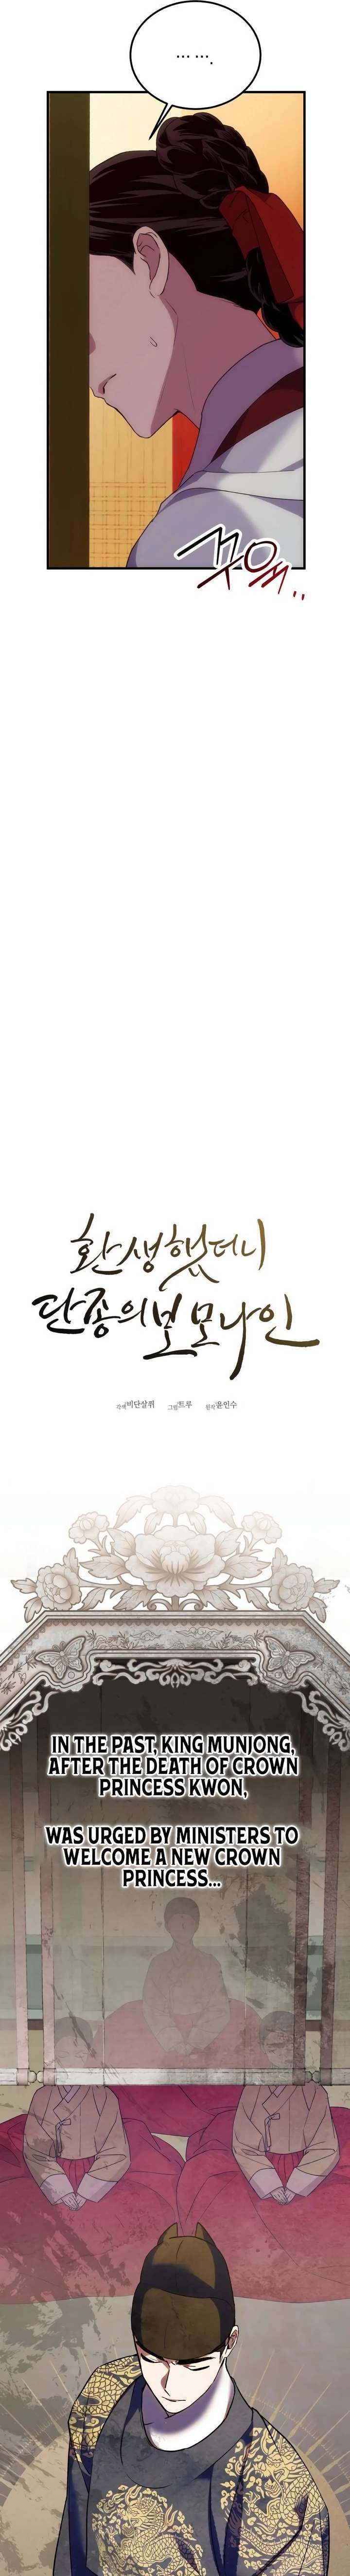 ... ....
꾸욱..
환생했더니
단종의 보모나인
각색 비단살쾡 그림 트루 원작 윤인수
IN THE PAST, KING MUNJONG,
AFTER THE DEATH OF CROWN
PRINCESS KWON,
WAS URGED BY MINISTERS TO
WELCOME A NEW CROWN
PRINCESS...